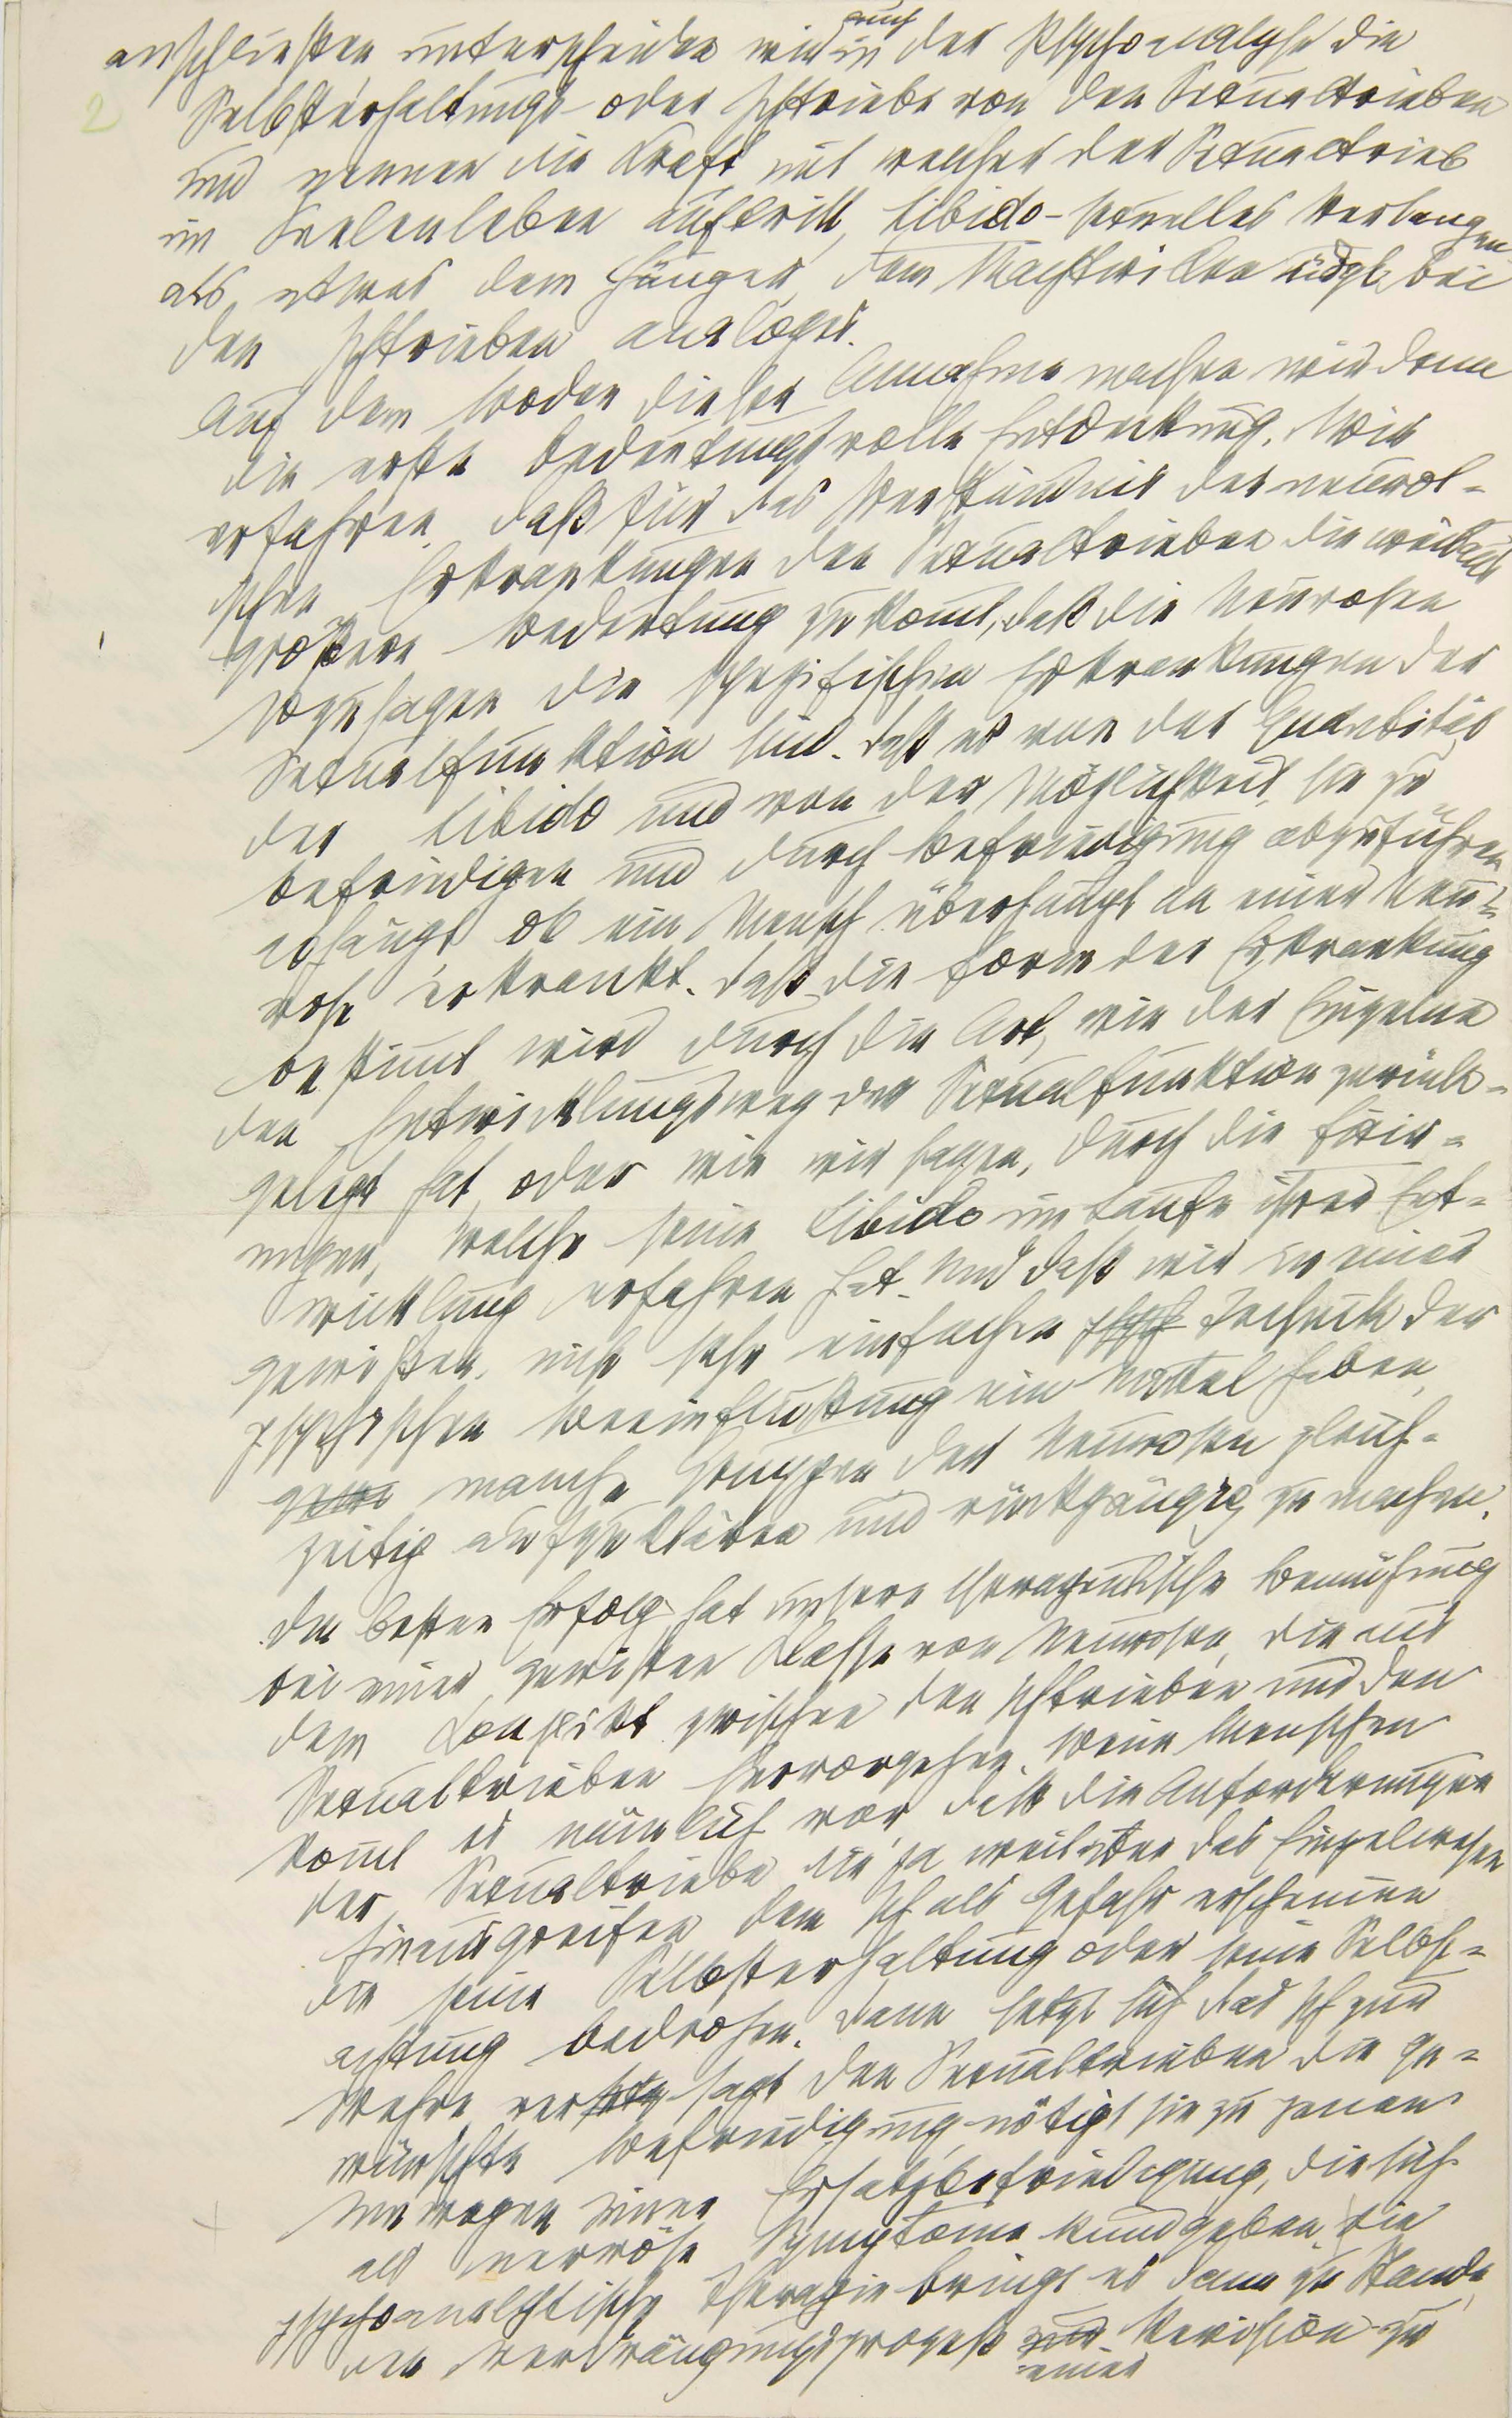 anschließen unterscheiden wir auch in der Psychoanalyse die
2 Selbsterhaltungs- oder Ichtriebe von den Sexualtrieben
und nennen die Kraft, mit welcher der Sexualtrieb
im Seelenleben auftritt, Libido – sexuelles Verlangen –
als etwas dem Hunger, dem Machtwillen udgl. bei
den Ichtrieben analoges.
Auf dem Boden dieser Annahme machen wir dann
die erste bedeutungsvolle Entdeckung. Wir
erfahren, daß für das Verständnis der neuroti-
schen Erkrankungen den Sexualtrieben die weitaus
größere Bedeutung zukomt, daß die Neurosen
sozusagen die spezifischen Erkrankungen der
Sexualfunktion sind. Daß es von der Quantität
der Libido und von der Möglichkeit, sie zu
befriedigen und durch Befriedigung abzuführen
abhängt, ob ein Mensch überhaupt an einer Neu-
rose erkrankt. Daß die Form der Erkrankung
bestimt wird durch die Art, wie der Einzelne
den Entwicklungsweg der Sexualfunktion zurück-
gelegt hat, oder wie wir sagen, durch die Fixir-
ungen, welche seine Libido im Laufe ihrer Ent-
wicklung erfahren hat. Und daß wir in einer
gewissen, nicht sehr einfachen Technik der
psychischen Beeinflussung ein Mittel haben,
manche Gruppen der Neurosen gleich-
zeitig aufzuklären und rückgängig zu machen.
Den besten Erfolg hat unsere therapeutische Bemühung
bei einer gewissen Klasse von Neurosen, die aus
dem Konflikt zwischen den Ichtrieben und den
Sexualtrieben hervorgehen. Beim Menschen
komt es nämlich vor, daß die Anforderungen
der Sexualtriebe, die ja weit über das Einzelwesen
hinausgreifen, dem Ich als Gefahr erscheinen
die seine Selbsterhaltung oder seine Selbst-
achtung bedrohen. Dann setzt sich das Ich zur
Wehre, versagt den Sexualtrieben die ge-
wünschte Befriedigung, nötigt sie zu jenen
Umwegen einer Ersatzbefriedigung, die sich
als nervöse Symptome kundgeben. Die
psychoanalytische Therapie bringt es dann zu Stande,
den Verdrängungsprozeß einer Revision zu